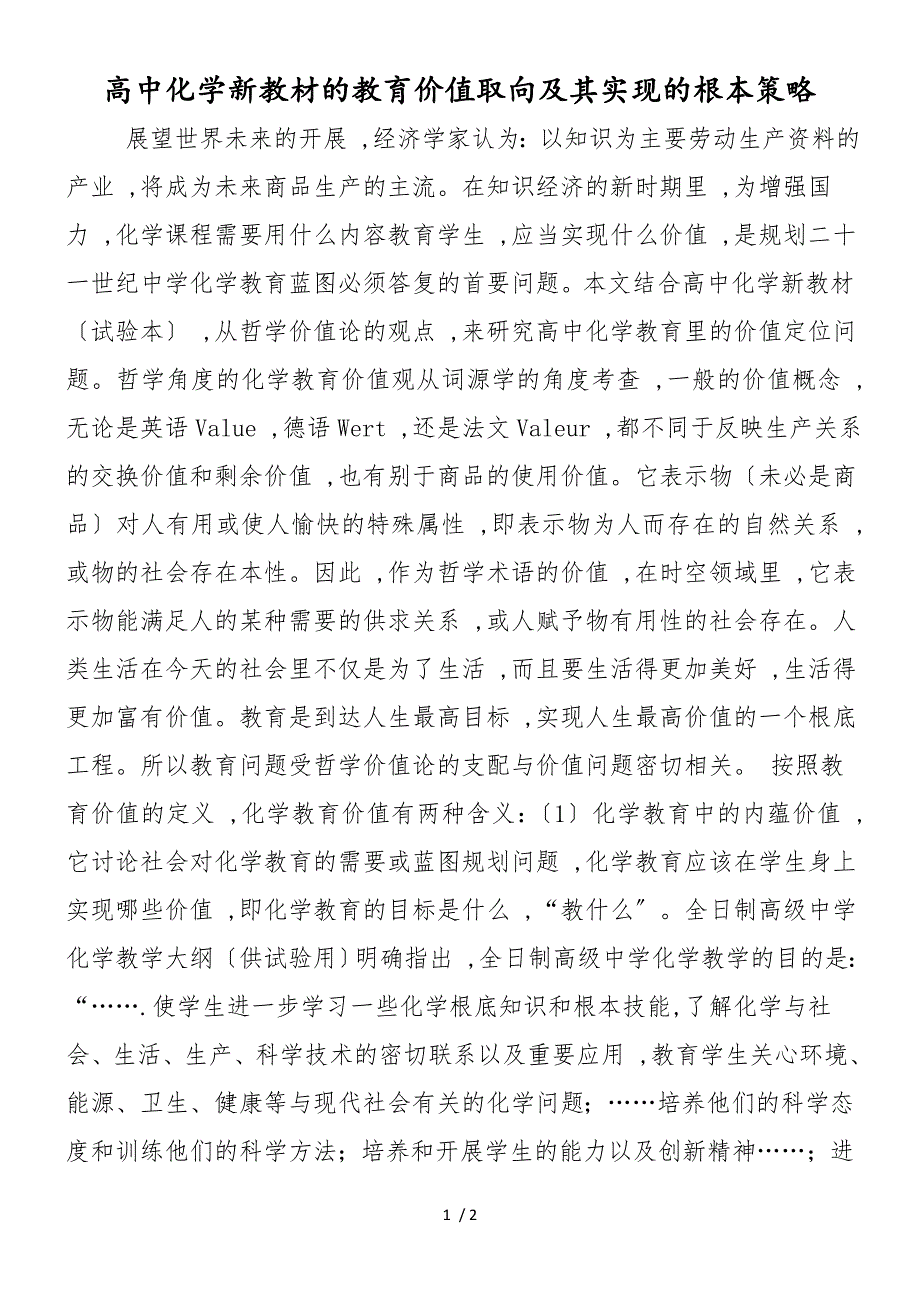 高中化学新教材的教育价值取向及其实现的根本策略
展望世界未来的开展 ,经济学家认为：以知识为主要劳动生产资料的
产业 ,将成为未来商品生产的主流。在知识经济的新时期里 ,为增强国
力 ,化学课程需要用什么内容教育学生 ,应当实现什么价值 ,是规划二十
一世纪中学化学教育蓝图必须答复的首要问题。本文结合高中化学新教材
〔试验本〕 ,从哲学价值论的观点 ,来研究高中化学教育里的价值定位问
题。哲学角度的化学教育价值观从词源学的角度考查 ,一般的价值概念 ,
无论是英语Value ,德语Wert ,还是法文Valeur ,都不同于反映生产关系
的交换价值和剩余价值 ,也有别于商品的使用价值。它表示物〔未必是商
品〕对人有用或使人愉快的特殊属性 ,即表示物为人而存在的自然关系 ,
或物的社会存在本性。因此 ,作为哲学术语的价值 ,在时空领域里 ,它表
示物能满足人的某种需要的供求关系 ,或人赋予物有用性的社会存在。人
类生活在今天的社会里不仅是为了生活 ,而且要生活得更加美好 ,生活得
更加富有价值。教育是到达人生最高目标 ,实现人生最高价值的一个根底
工程。所以教育问题受哲学价值论的支配与价值问题密切相关。 按照教
育价值的定义 ,化学教育价值有两种含义：〔1〕化学教育中的内蕴价值 ,
它讨论社会对化学教育的需要或蓝图规划问题 ,化学教育应该在学生身上
实现哪些价值 ,即化学教育的目标是什么 ,“教什么〞。全日制高级中学
化学教学大纲〔供试验用〕明确指出 ,全日制高级中学化学教学的目的是：
“…….使学生进一步学习一些化学根底知识和根本技能,了解化学与社
会、生活、生产、科学技术的密切联系以及重要应用 ,教育学生关心环境、
能源、卫生、健康等与现代社会有关的化学问题；……培养他们的科学态
度和训练他们的科学方法；培养和开展学生的能力以及创新精神……；进
1 / 2